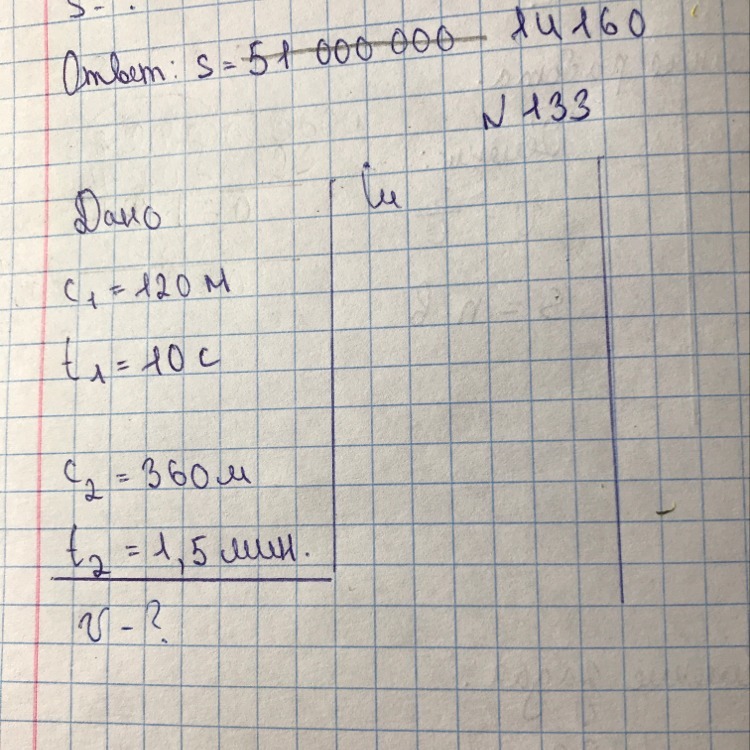 S - ?
Ответ: S = 51 000 000 14160
N 133
Дано
Си
c₁ = 120 м
t₁ = 10 с
c₂ = 360 м
t₂ = 1,5 мин.
v - ?